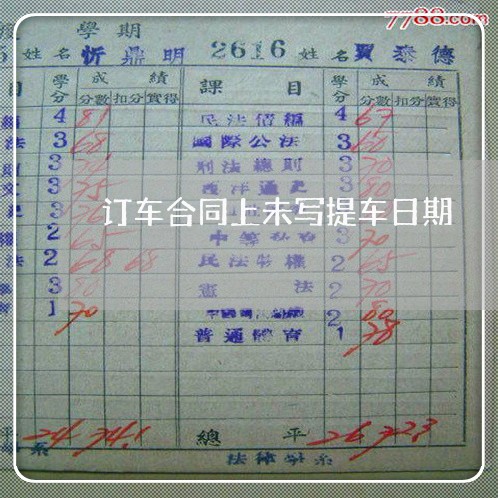 7788.com
學期
姓名 忻鼎明 2616 姓名 賈泰德
目 學分 成績 課目 學分 成績
分數 扣分 實得 分數 扣分 實得
4 81 民法債編 4 67
法 3 68 國際公法 3 60
3 刑法總則 3 70
3 75 西洋通史 3 80
訂车合同上未写提车日期
2 65 3 70
法 2 68 68 民法物權 2 65
3 80 憲法 2 70
1 70 2 80
普通體育 1 78
平 24 74.1 總平 26 72.3
系 法律學系